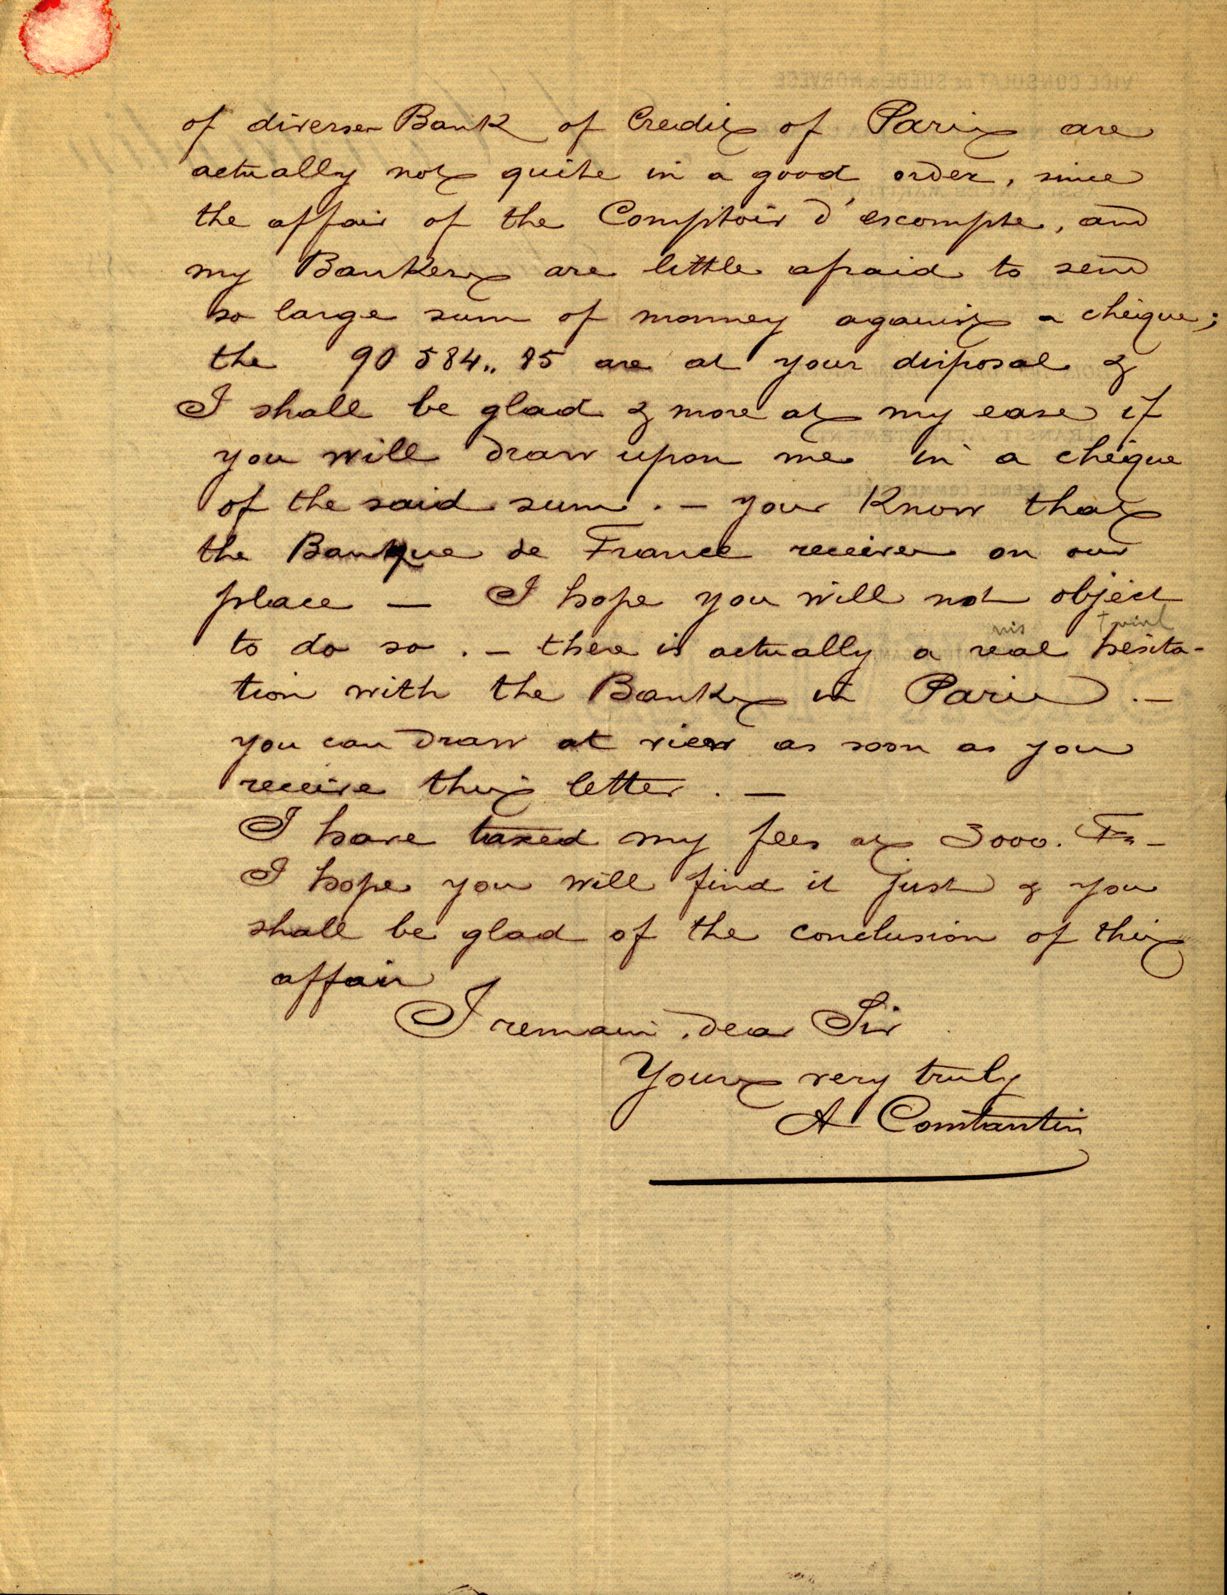 of diverse Bank of Credits of Paris are
actually not quite in a good order, since
the affair of the Comptoir d'escompte, and
my Bankers are little afraid to send
so large sum of monney against a chèque;
the 90 584,, 85 are at your disposal &
I shall be glad & more at my ease if
you will draw upon me in a chèque
of the said sum. — your Know that
the Banque de France receives on our
place — I hope you will not object
to do so. — there is actually a real hesita-
tion with the Banks in Paris. —
you can draw at view as soon as you
receive this letter. —
I have taxed my fees at 3000. Frs —
I hope you will find it just & you
shall be glad of the conclusion of this
affair
I remain, dear Sir
Yours very truly
A Constantin